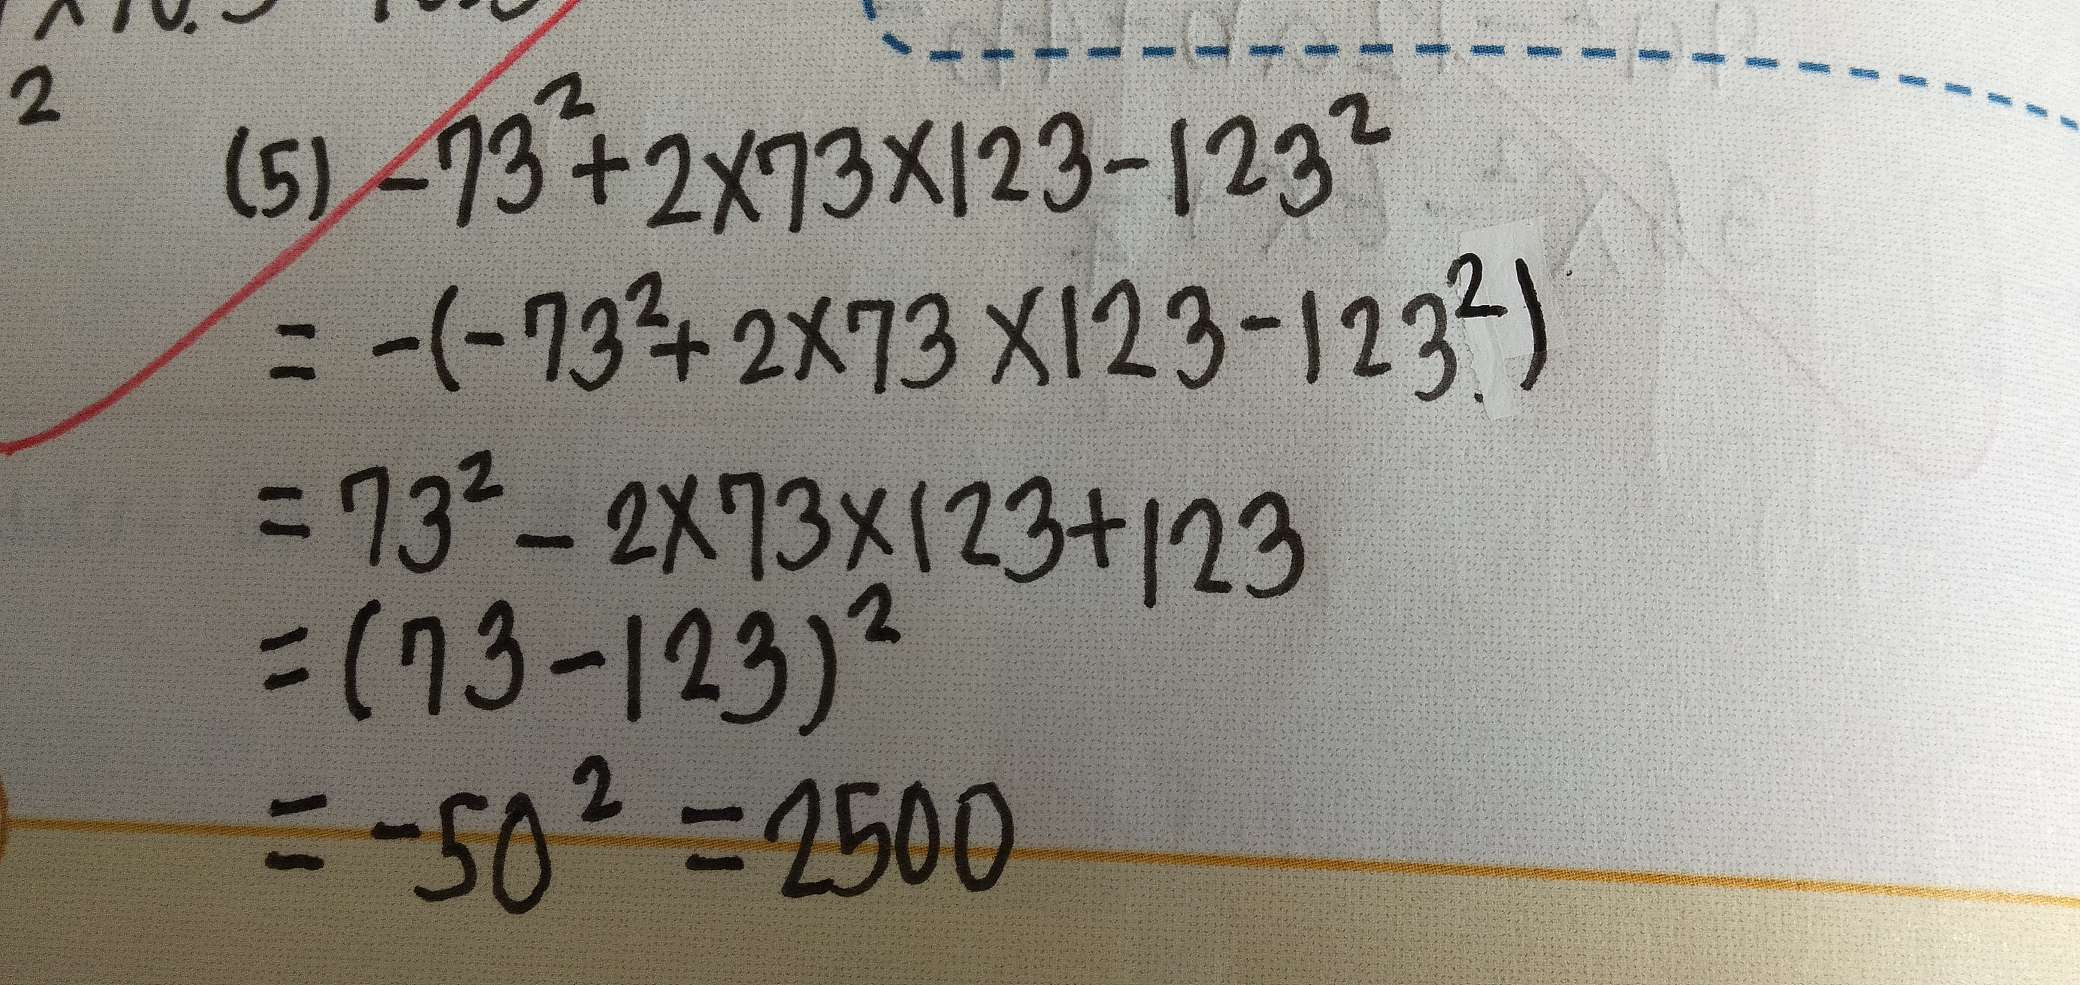 2
(5) -73²+2×73×123-123²
= -(-73²+2×73×123-123²)
= 73²-2×73×123+123
=(73-123)²
= -50² =2500